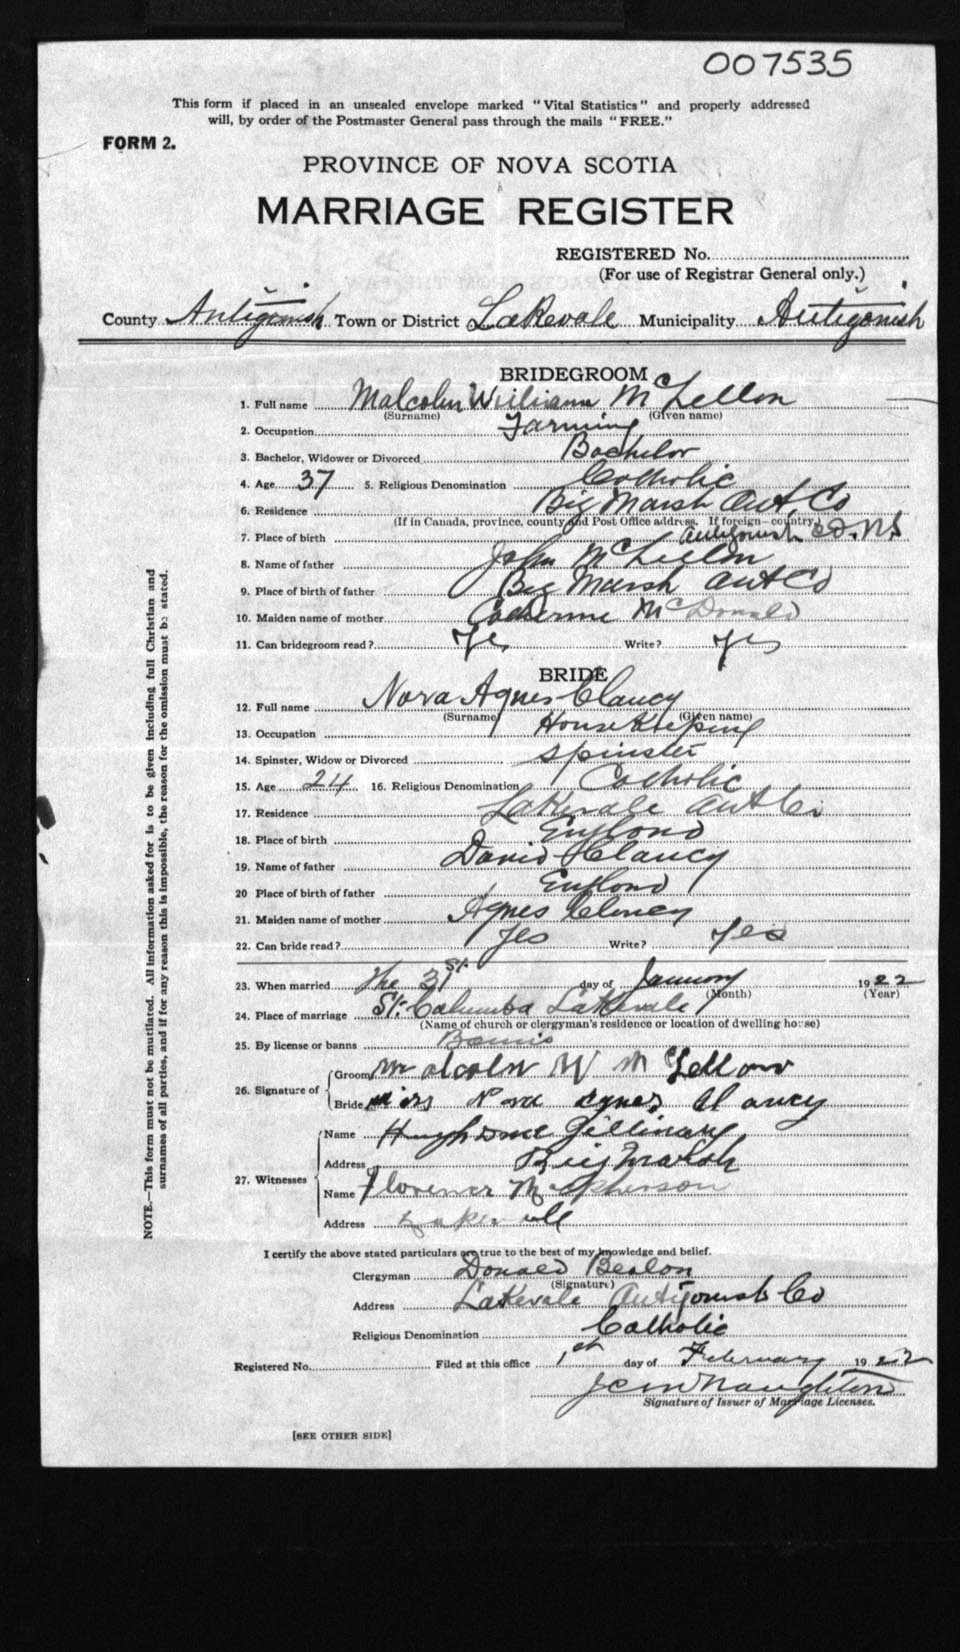 007535
This form if placed in an unsealed envelope marked "Vital Statistics" and properly addressed
will, by order of the Postmaster General pass through the mails "FREE."
FORM 2.
PROVINCE OF NOVA SCOTIA
MARRIAGE REGISTER
REGISTERED No.
(For use of Registrar General only.)
County Antigonish Town or District Lakevale Municipality Antigonish
BRIDEGROOM
1. Full name Malcolm William McLellan
(Surname) (Given name)
2. Occupation Farming
3. Bachelor, Widower or Divorced Bachelor
4. Age 37 5. Religious Denomination Catholic
6. Residence Big Marsh Ant. Co
(If in Canada, province, county and Post Office address. If foreign—country.)
7. Place of birth Antigonish Co. N.S
8. Name of father John McLellan
9. Place of birth of father Big Marsh Ant Co
10. Maiden name of mother Catherine McDonald
11. Can bridegroom read? Yes Write? Yes
BRIDE
12. Full name Nora Agnes Clancy
(Surname) (Given name)
13. Occupation House Keeping
14. Spinster, Widow or Divorced Spinster
15. Age 24 16. Religious Denomination Catholic
17. Residence Lakevale Ant Co
18. Place of birth England
19. Name of father David Clancy
20 Place of birth of father England
21. Maiden name of mother Agnes Clancy
22. Can bride read? Yes Write? Yes
23. When married The 31st day of January 1922
(Month) (Year)
24. Place of marriage St. Columba Lakevale
(Name of church or clergyman's residence or location of dwelling house)
25. By license or banns Banns
26. Signature of Groom Malcolm W McLellan
Bride Miss Nora Agnes Clancy
27. Witnesses Name Hugh Gillivray
Address Big Marsh
Name Florence McPherson
Address Lakevale
I certify the above stated particulars are true to the best of my knowledge and belief.
Clergyman Donald Beaton
(Signature)
Address Lakevale Antigonish Co
Religious Denomination Catholic
Registered No. Filed at this office 1st day of February 1922
Signature of Issuer of Marriage Licenses.
[SEE OTHER SIDE]
NOTE.—This form must not be mutilated. All information asked for is to be given including full Christian and
surnames of all parties, and if for any reason this is impossible, the reason for the omission must be stated.